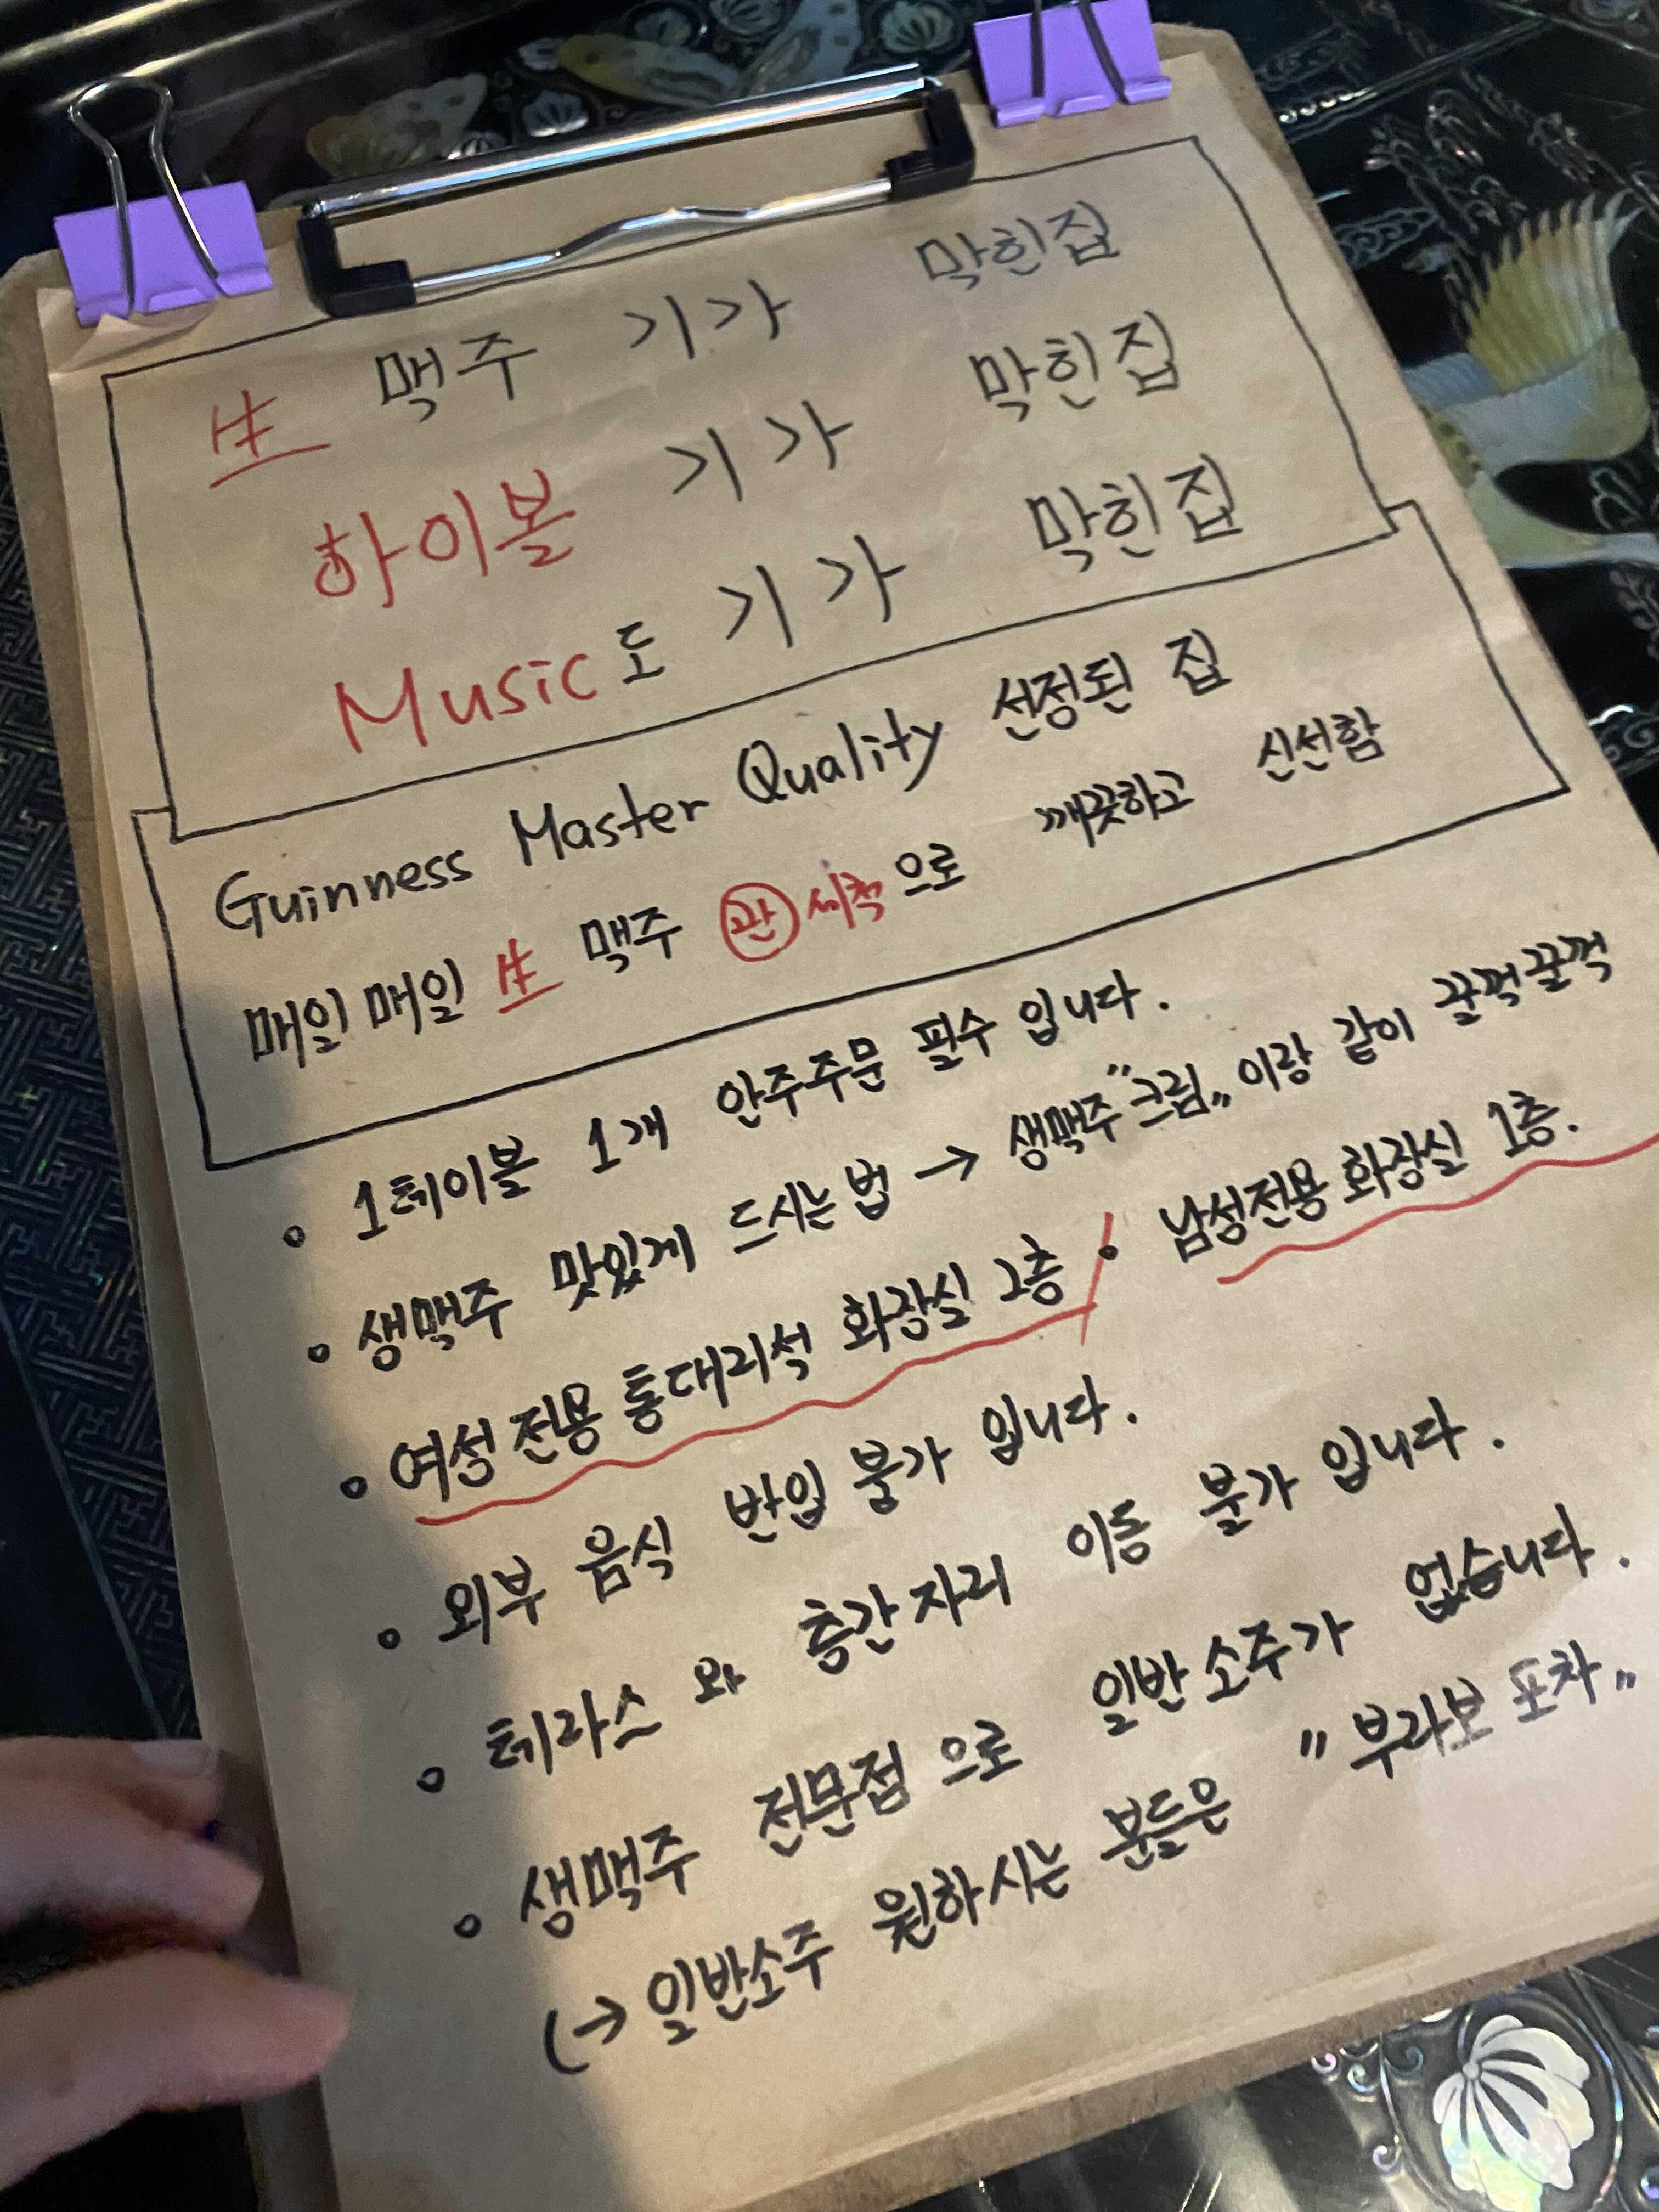 生 맥주 기가 막힌집
하이볼 기가 막힌집
Music도 기가 막힌집
Guinness Master Quality 선정된 집
매일매일 生 맥주 관세척으로 깨끗하고 신선함
• 1테이블 1개 안주주문 필수 입니다.
• 생맥주 맛있게 드시는법 → 생맥주 "크림" 이랑 같이 꿀꺽꿀꺽
• 여성전용 통대리석 화장실 2층 / • 남성전용 화장실 1층.
• 외부 음식 반입 불가 입니다.
• 테라스 와 층간자리 이동 불가 입니다.
• 생맥주 전문점 으로 일반소주가 없습니다.
(→ 일반소주 원하시는 분들은 "부라보 포차"